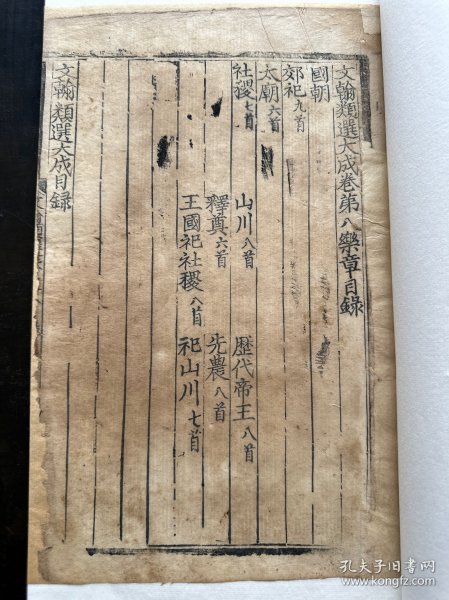 文翰類選大成卷第八樂章目錄
國朝
郊祀九首
太廟六首
社稷七首 山川八首 歴代帝王八首
釋奠六首 先農八首
王國祀社稷八首 祀山川七首
文翰類選大成目録
孔夫子旧书网
www.kongfz.com